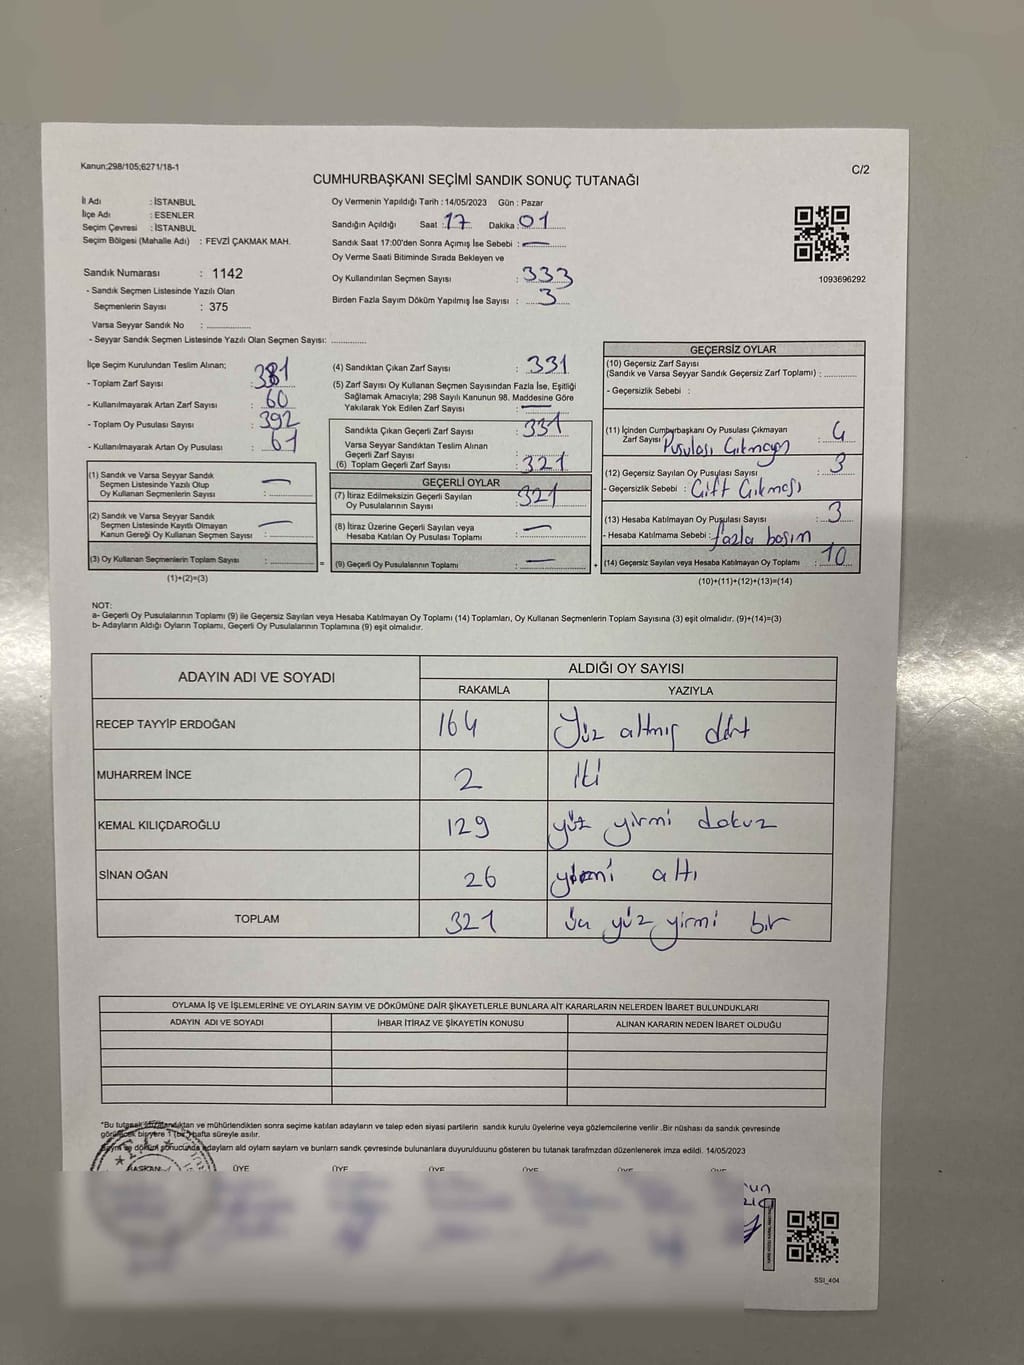 Kanun;298/105;6271/18-1
C/2
CUMHURBAŞKANI SEÇİMİ SANDIK SONUÇ TUTANAĞI
İl Adı : İSTANBUL
İlçe Adı : ESENLER
Seçim Çevresi : İSTANBUL
Seçim Bölgesi (Mahalle Adı) : FEVZİ ÇAKMAK MAH.
Oy Vermenin Yapıldığı Tarih : 14/05/2023 Gün : Pazar
Sandığın Açıldığı Saat : 17 Dakika : 01
Sandık Saat 17:00'den Sonra Açımış İse Sebebi : —
Oy Verme Saati Bitiminde Sırada Bekleyen ve
Oy Kullandırılan Seçmen Sayısı : 333
Birden Fazla Sayım Döküm Yapılmış İse Sayısı : 3
1093696292
Sandık Numarası : 1142
- Sandık Seçmen Listesinde Yazılı Olan
Seçmenlerin Sayısı : 375
Varsa Seyyar Sandık No : ................
- Seyyar Sandık Seçmen Listesinde Yazılı Olan Seçmen Sayısı: .............
İlçe Seçim Kurulundan Teslim Alınan;
- Toplam Zarf Sayısı : 381
- Kullanılmayarak Artan Zarf Sayısı : 60
- Toplam Oy Pusulası Sayısı : 392
- Kullanılmayarak Artan Oy Pusulası : 61
(1) Sandık ve Varsa Seyyar Sandık
Seçmen Listesinde Yazılı Olup
Oy Kullanan Seçmenlerin Sayısı : —
(2) Sandık ve Varsa Seyyar Sandık
Seçmen Listesinde Kayıtlı Olmayan
Kanun Gereği Oy Kullanan Seçmen Sayısı : —
(3) Oy Kullanan Seçmenlerin Toplam Sayısı : ............. =
(1)+(2)=(3)
(4) Sandıktan Çıkan Zarf Sayısı : 331
(5) Zarf Sayısı Oy Kullanan Seçmen Sayısından Fazla İse, Eşitliği
Sağlamak Amacıyla; 298 Sayılı Kanunun 98. Maddesine Göre
Yakılarak Yok Edilen Zarf Sayısı : —
Sandıkta Çıkan Geçerli Zarf Sayısı : 331
Varsa Seyyar Sandıktan Teslim Alınan
Geçerli Zarf Sayısı :
(6) Toplam Geçerli Zarf Sayısı : 321
GEÇERLİ OYLAR
(7) İtiraz Edilmeksizin Geçerli Sayılan
Oy Pusulalarının Sayısı : 321
(8) İtiraz Üzerine Geçerli Sayılan veya
Hesaba Katılan Oy Pusulası Toplamı : —
(9) Geçerli Oy Pusulalarının Toplamı : — +
GEÇERSİZ OYLAR
(10) Geçersiz Zarf Sayısı
(Sandık ve Varsa Seyyar Sandık Geçersiz Zarf Toplamı) : ............
- Geçersizlik Sebebi :
(11) İçinden Cumhurbaşkanı Oy Pusulası Çıkmayan
Zarf Sayısı : 4
Pusulası Çıkmayan
(12) Geçersiz Sayılan Oy Pusulası Sayısı : 3
- Geçersizlik Sebebi : Çift Çıkması
(13) Hesaba Katılmayan Oy Pusulası Sayısı : 3
- Hesaba Katılmama Sebebi : fazla basım
(14) Geçersiz Sayılan veya Hesaba Katılmayan Oy Toplamı : 10
(10)+(11)+(12)+(13)=(14)
NOT:
a- Geçerli Oy Pusulalarının Toplamı (9) ile Geçersiz Sayılan veya Hesaba Katılmayan Oy Toplamı (14) Toplamları, Oy Kullanan Seçmenlerin Toplam Sayısına (3) eşit olmalıdır. (9)+(14)=(3)
b- Adayların Aldığı Oyların Toplamı, Geçerli Oy Pusulalarının Toplamına (9) eşit olmalıdır.
ADAYIN ADI VE SOYADI
ALDIĞI OY SAYISI
RAKAMLA YAZIYLA
RECEP TAYYİP ERDOĞAN 164 Yüz altmış dört
MUHARREM İNCE 2 iki
KEMAL KILIÇDAROĞLU 129 yüz yirmi dokuz
SİNAN OĞAN 26 yirmi altı
TOPLAM 321 üç yüz yirmi bir
OYLAMA İŞ VE İŞLEMLERİNE VE OYLARIN SAYIM VE DÖKÜMÜNE DAİR ŞİKAYETLERLE BUNLARA AİT KARARLARIN NELERDEN İBARET BULUNDUKLARI
ADAYIN ADI VE SOYADI İHBAR İTİRAZ VE ŞİKAYETİN KONUSU ALINAN KARARIN NEDEN İBARET OLDUĞU
*Bu tutanak imzalandıktan ve mühürlendikten sonra seçime katılan adayların ve talep eden siyasi partilerin sandık kurulu üyelerine veya gözlemcilerine verilir .Bir nüshası da sandık çevresinde
görülecek bir yere 1 (bir) hafta süreyle asılır.
Sayım ve döküm sonucunda adayların aldığı oyların sayısı ve bunların sandık çevresinde bulunanlara duyurulduğunu gösteren bu tutanak tarafımızdan düzenlenerek imza edildi. 14/05/2023
BAŞKAN ÜYE ÜYE ÜYE ÜYE ÜYE ÜYE
SSI_404